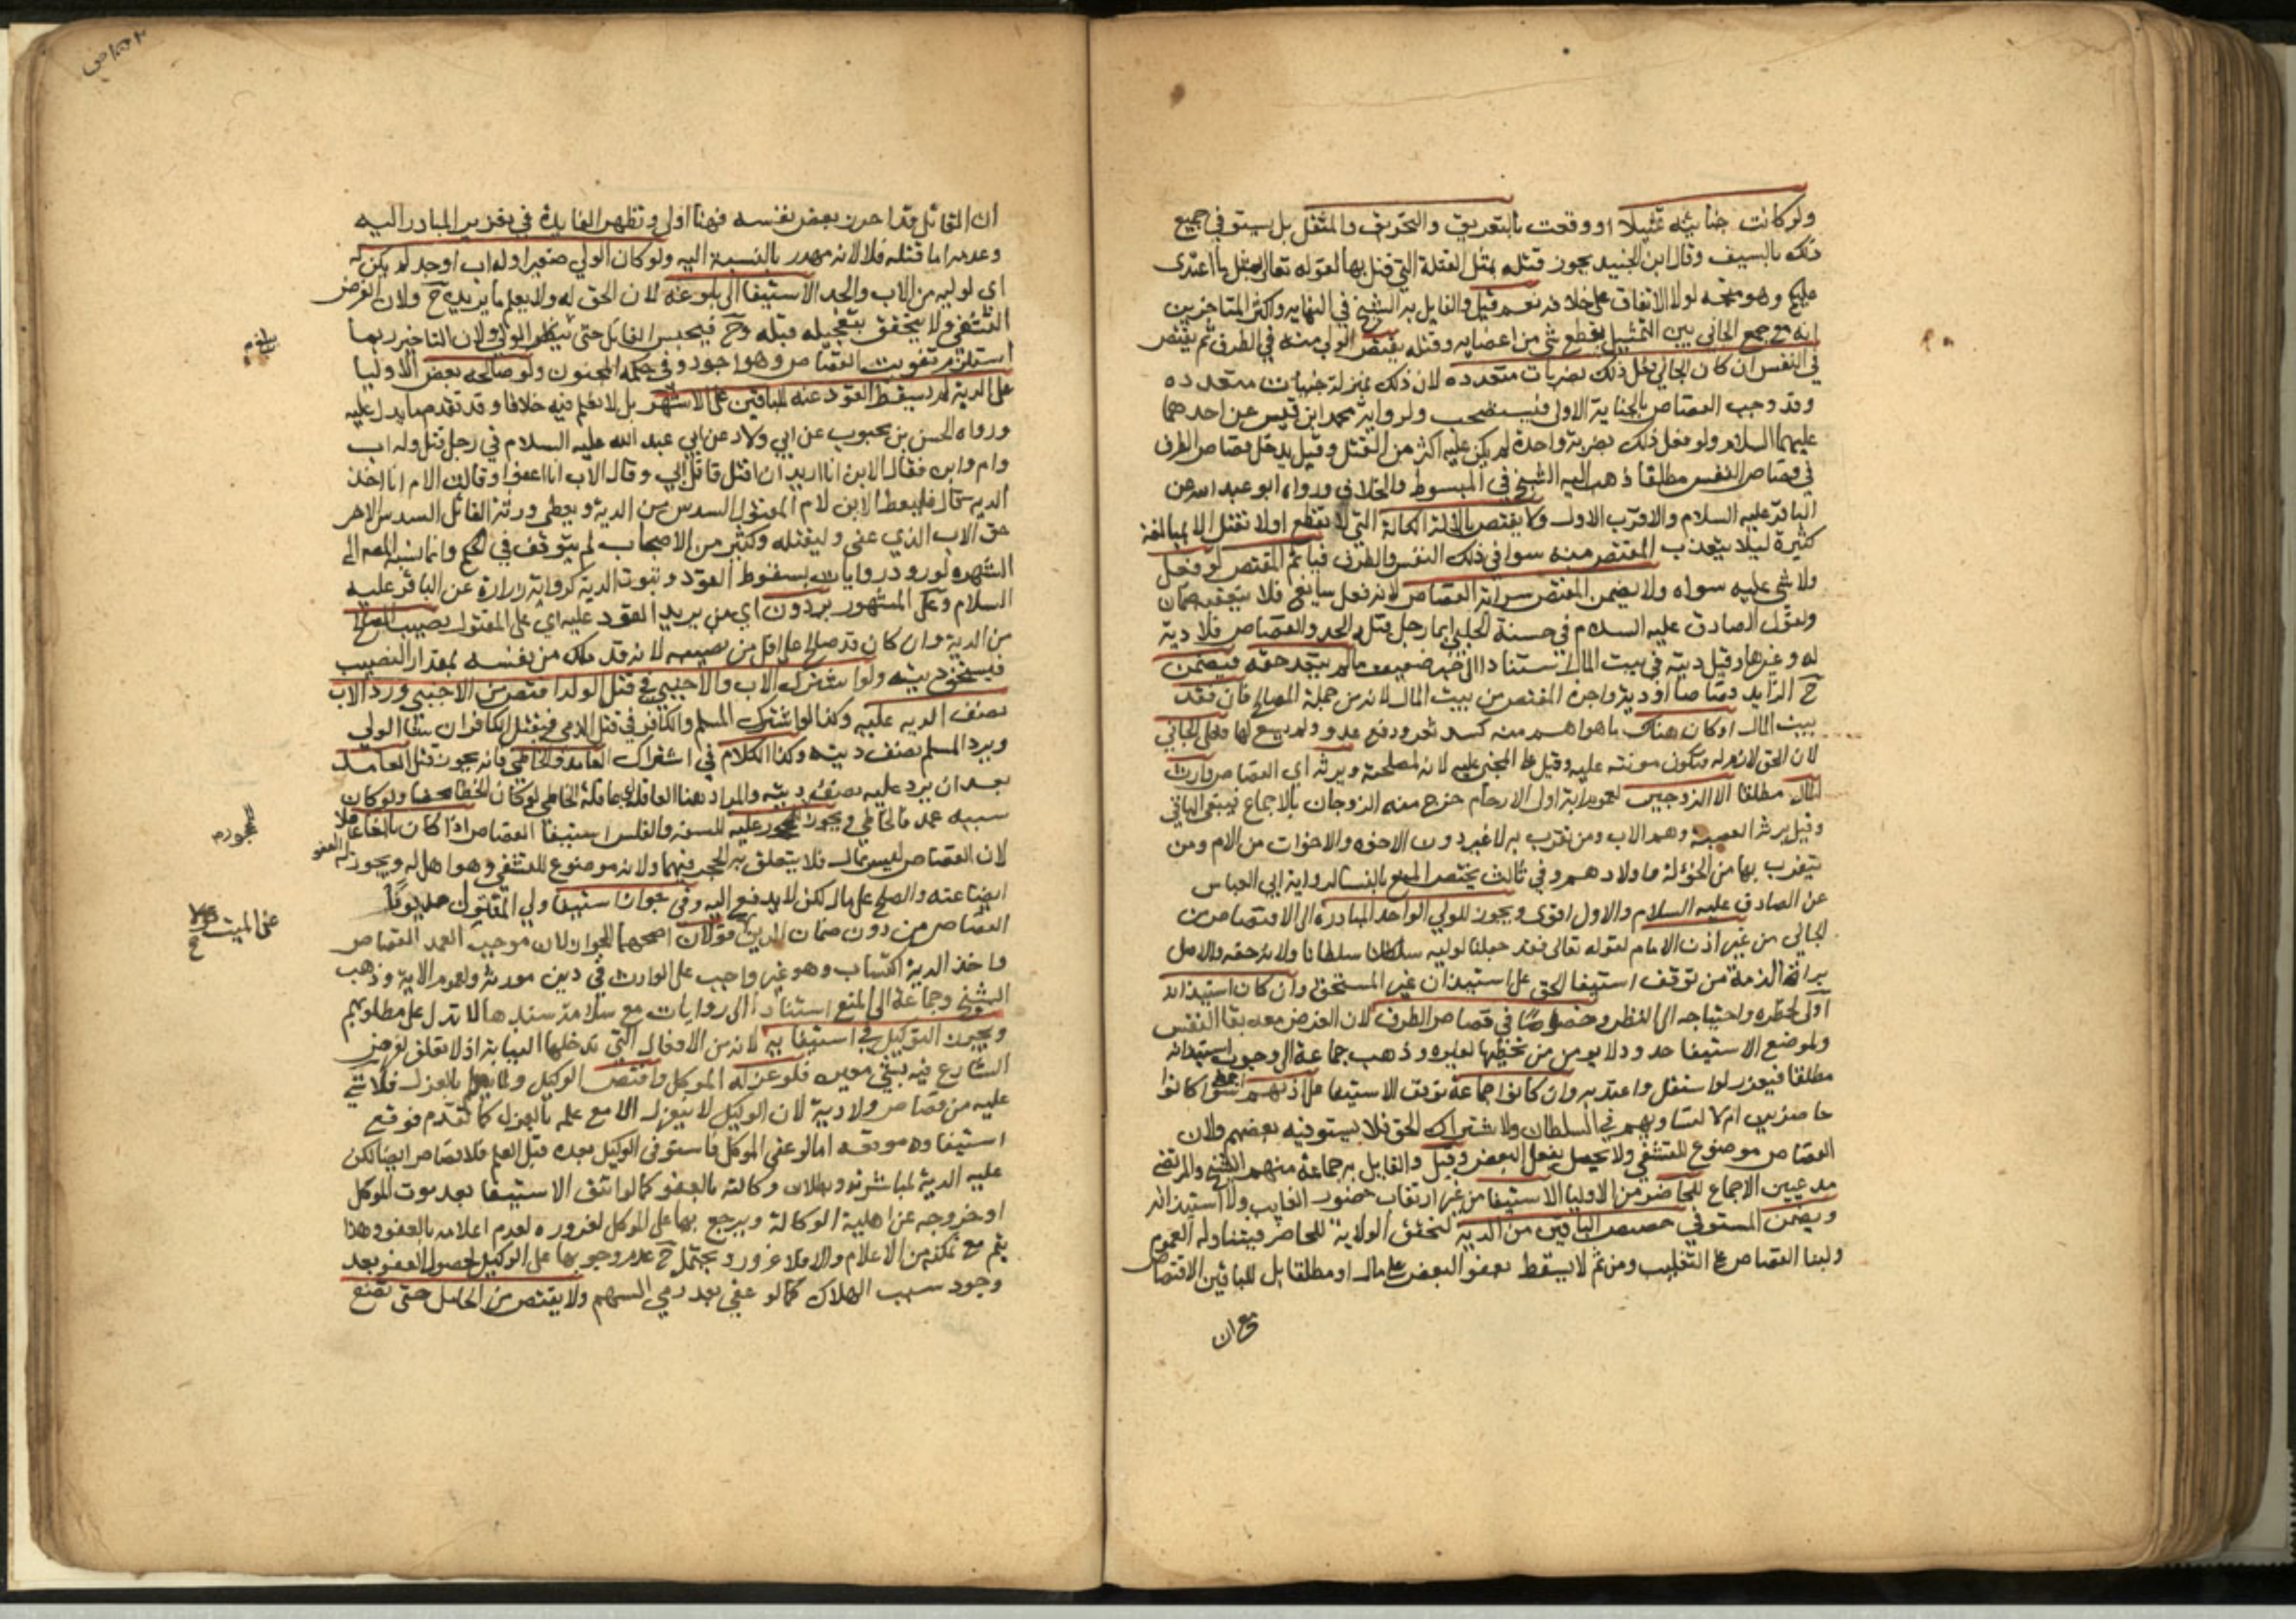 ولو كانت جنايته تمثيلا او وقعت بالتغريق والتحريق والمثقل بل يستوفي جميع
ذلك بالسيف وقال ابن الجنيد يجوز قتله بمثل القتلة التي قتل بها لقوله تعالى بمثل ما اعتدى
عليكم وهو متجه لولا الاتفاق على خلافه نعم قيل والقايل به الشيخ في النهايه واكثر المتاخرين
انه مع جمع الجاني بين التمثيل بقطع شي من اعضايه وقتله يقتص الولي منه في الطرف ثم يقتص
في النفس ان كان الجاني فعل ذلك بضربات متعدده لان ذلك بمنزلة جنايات متعدده
وقد وجب القصاص بالجناية الاولى فيستصحب ولرواية محمد ابن قيس عن احدهما
عليهما السلام ولو فعل ذلك بضربة واحدة لم يكن عليه اكثر من القتل وقيل يدخل قصاص الطرف
في قصاص النفس مطلقا ذهب اليه الشيخ في المبسوط والخلاف ورواه ابو عبيده عن
الباقر عليه السلام والاقرب الاول ولا يقتص بالالة الكالة التي لا تقطع او لا تقتل الا بمبالغة
كثيرة ليلا يتعذب المقتص منه سوا في ذلك النفس والطرف فياثم المقتص لو فعل
ولا شي عليه سواه ولا يضمن المقتص سراية القصاص لانه فعل سايغ فلا يتعقبه ضمان
ولقول الصادق عليه السلام في حسنة الحلبي ايما رجل قتله الحد والقصاص فلا دية
له وغيرها وقيل ديته في بيت المال استنادا الى خبر ضعيف ما لم يتعد حقه فيضمن
ح الزايد قصاصا او دية واجرة المقتص من بيت المال لانه من جملة المصالح فان فقد
بيت المال او كان هناك ما هو اهم منه كسد ثغر ودفع عدو ولم يسع لها فعلى الجاني
لان الحق لازم له فتكون مونته عليه وقيل على المجني عليه لانه لمصلحته ويرثه اي القصاص وارث
المال مطلقا الا الزوجين لعموم اية اولى الارحام خرج منه الزوجان بالاجماع فيبقى الباقي
وقيل يرثه العصبة وهم الاب ومن تقرب به لا غير دون الاخوه والاخوات من الام ومن
يتقرب بها من الخولة واولادهم وفي ثالث يختص المنع بالنسا لرواية ابي العباس
عن الصادق عليه السلام والاول اقوى ويجوز للولي الواحد المبادره الى الاقتصاص من
الجاني من غير اذن الامام لقوله تعالى فقد جعلنا لوليه سلطانا ولانه حقه والاصل
براة الذمة من توقف استيفا الحق على استيذان غير المستحق وان كان استيذانه
اولى لخطره واحتياجه الى النظر وخصوصا في قصاص الطرف لان الغرض معه بقا النفس
ولموضع الاستيفا حدود لا يومن من تخطيها لغيره وذهب جماعة الى وجوب استيذانه
مطلقا فيعزر لو استقل واعتد به وان كانوا جماعة توقف الاستيفا على اذنهم اجمع سوا كانوا
حاضرين ام لا لتساويهم في السلطان ولاشتراك الحق فلا يستوفيه بعضهم ولان
القصاص موضوع للتشفي ولا يحصل بفعل البعض وقيل والقايل به جماعة منهم الشيخ والمرتضى
مدعيين الاجماع للحاضر من الاوليا الاستيفا من غير ارتقاب حضور الغايب ولا استيذانه
ويضمن المستوفي حصص الباقين من الدية لتحقق الولاية للحاضر فيتناوله العموم
ولبنا القصاص على التغليب ومن ثم لا يسقط بعفو البعض على مال او مطلقا بل للباقين الاقتصاص
مع ان
ان القاتل قد احرز بعض نفسه فهنا اولى وتظهر الفايدة في تعزير المبادر اليه
وعدمه اما قتله فلا لانه مهدر بالنسبة اليه ولو كان الولي صغيرا وله اب او جد لم يكن له
اي لوليه من الاب والجد الاستيفا الى بلوغه لان الحق له ولا يعلم ما يريده ح ولان الغرض
التشفي ولا يتحقق بتعجيله قبله وح فيحبس القاتل حتى ينظر الولي ولان التاخير ربما
استلزم تفويت القصاص وهو اجود وفي حكمه المجنون ولو صالحه بعض الاوليا
على الدية لم يسقط القود عنه للباقين على الاشهر بل لا نعلم فيه خلافا وقد تقدم ما يدل عليه
ورواه الحسن بن محبوب عن ابي ولاد عن ابي عبد الله عليه السلام في رجل قتل وله اب
وام وابن فقال الابن انا اريد ان اقتل قاتل ابي وقال الاب انا اعفوا وقالت الام انا اخذ
الدية قال فليعط الابن لام المقتول السدس من الدية ويعطي ورثة القاتل السدس الاخر
حق الاب الذي عفى وليقتله وكثير من الاصحاب لم يتوقف في الحكم وانما نسبه المصه الى
الشهره لورود روايات بسقوط القود وثبوت الدية كرواية زرارة عن الباقر عليه
السلام وعلى المشهور يردون اي من يريد القود عليه اي على المقتول نصيب المصالح
من الدية وان كان قد صالح على اقل من نصيبه لانه قد ملك من نفسه بمقدار النصيب
فيستحق ديته ولو اشترك الاب والاجنبي في قتل الولد اقتص من الاجنبي ورد الاب
نصف الدية عليه وكذا لو اشترك المسلم والكافر في قتل الذمي فيقتل الكافر ان شا الولي
ويرد المسلم نصف ديته وكذا الكلام في اشتراك العامد والخاطي فانه يجوز قتل العامد
بعد ان يرد عليه نصف ديته والمراد هنا العاقلة اي عاقلة الخاطي لو كان الخطا محضا ولو كان
شبيه عمد فالخاطي ويجوز للمحجور عليه للسفه والفلس استيفا القصاص اذا كان بالغا عاقلا
لان القصاص ليس بمال فلا يتعلق به الحجر فيهما ولانه موضوع للتشفي وهو اهل له ويجوز له العفو
ايضا عنه والصلح على مال لكن لا يدفع اليه وفي جواز استيفا ولي المقتول مديونا
القصاص من دون ضمان الدين قولان اصحهما الجواز لان موجب العمد القصاص
واخذ الدية اكتساب وهو غير واجب على الوارث في دين مورثه ولعموم الاية وذهب
الشيخ وجماعة الى المنع استنادا الى روايات مع سلامة سندها لا تدل على مطلوبهم
ويجوز التوكيل في استيفايه لانه من الافعال التي تدخلها النيابة اذ لا تعلق لغرض
الشارع فيه بشي معين فلو عزله الموكل واقتص الوكيل ولما يعلم بالعزل فلا شي
عليه من قصاص ولا دية لان الوكيل لا ينعزل الا مع علمه بالعزل كما تقدم فوقع
استيفاوه موقعه اما لو عفى الموكل فاستوفى الوكيل بعده قبل العلم فلا قصاص ايضا لكن
عليه الدية لمباشرته وبطلان وكالته بالعفو كما لو اتفق الاستيفا بعد موت الموكل
او خروجه عن اهلية الوكالة ويرجع بها على الموكل لغروره لعدم اعلامه بالعفو وهذا
يتم مع تمكنه من الاعلام والا فلا غرور ويحتمل ح عدم وجوبها على الوكيل لحصول العفو بعد
وجود سبب الهلاك كما لو عفى بعد رمي السهم ولا يقتص من الحامل حتى تضع
محجور
عن الميت